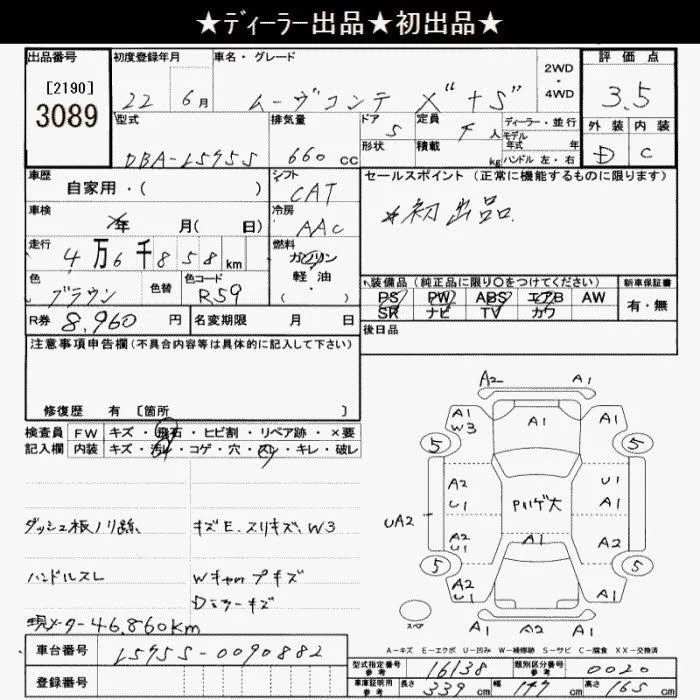 ★ディーラー出品★初出品★
出品番号 初度登録年月 車名・グレード 2WD・4WD 評価点
[2190] 22 6月 ムーヴコンテ X"+S" 3.5
3089
型式 排気量 ドア 定員 ディーラー・並行 外装 内装
DBA-L575S 660cc 5 4人 モデル年式 年 D C
形状 積載 kg ハンドル 左・右
車歴 シフト セールスポイント (正常に機能するものに限ります)
自家用・( ) CAT ★初出品
車検 冷房
年 月( 日) AAC
走行 燃料
4万6千858km ガソリン
軽・油
・( )
色 色替 色コード 装備品 (純正品に限り○をつけてください) 新車保証書
ブラウン R59 PS PW ABS エアB AW 有・無
SR ナビ TV カワ
R券 8,960円 名変期限 月 日 後日品
注意事項申告欄(不具合内容等は具体的に記入して下さい)
修復歴 有 [箇所 ]
検査員 FW キズ・飛石・ヒビ割・リペア跡・×要
記入欄 内装 キズ・汚レ・コゲ・穴・スレ・キレ・破レ
ダッシュ板ノリ跡、 キズE.スリキズ、W3
ハンドルスレ Wキャップキズ
Dミラーキズ
現メーター46,860km
A2 A1
A1 W3 A1 A1
5 5
A2 U1 U1 A1
UA2 Pハゲ大
A2 U1 A1 A2
5 5
A2 U1 A1
スペア A2 A1 A1
A-キズ E-エクボ U-凹み W-補修跡 S-サビ C-腐食 XX-交換済
車台番号 L575S-0090882
登録番号
型式指定番号 参考 16138 類別区分番号 参考 0020
車庫証明用 参考 長さ 339cm 幅 147cm 高さ 165cm